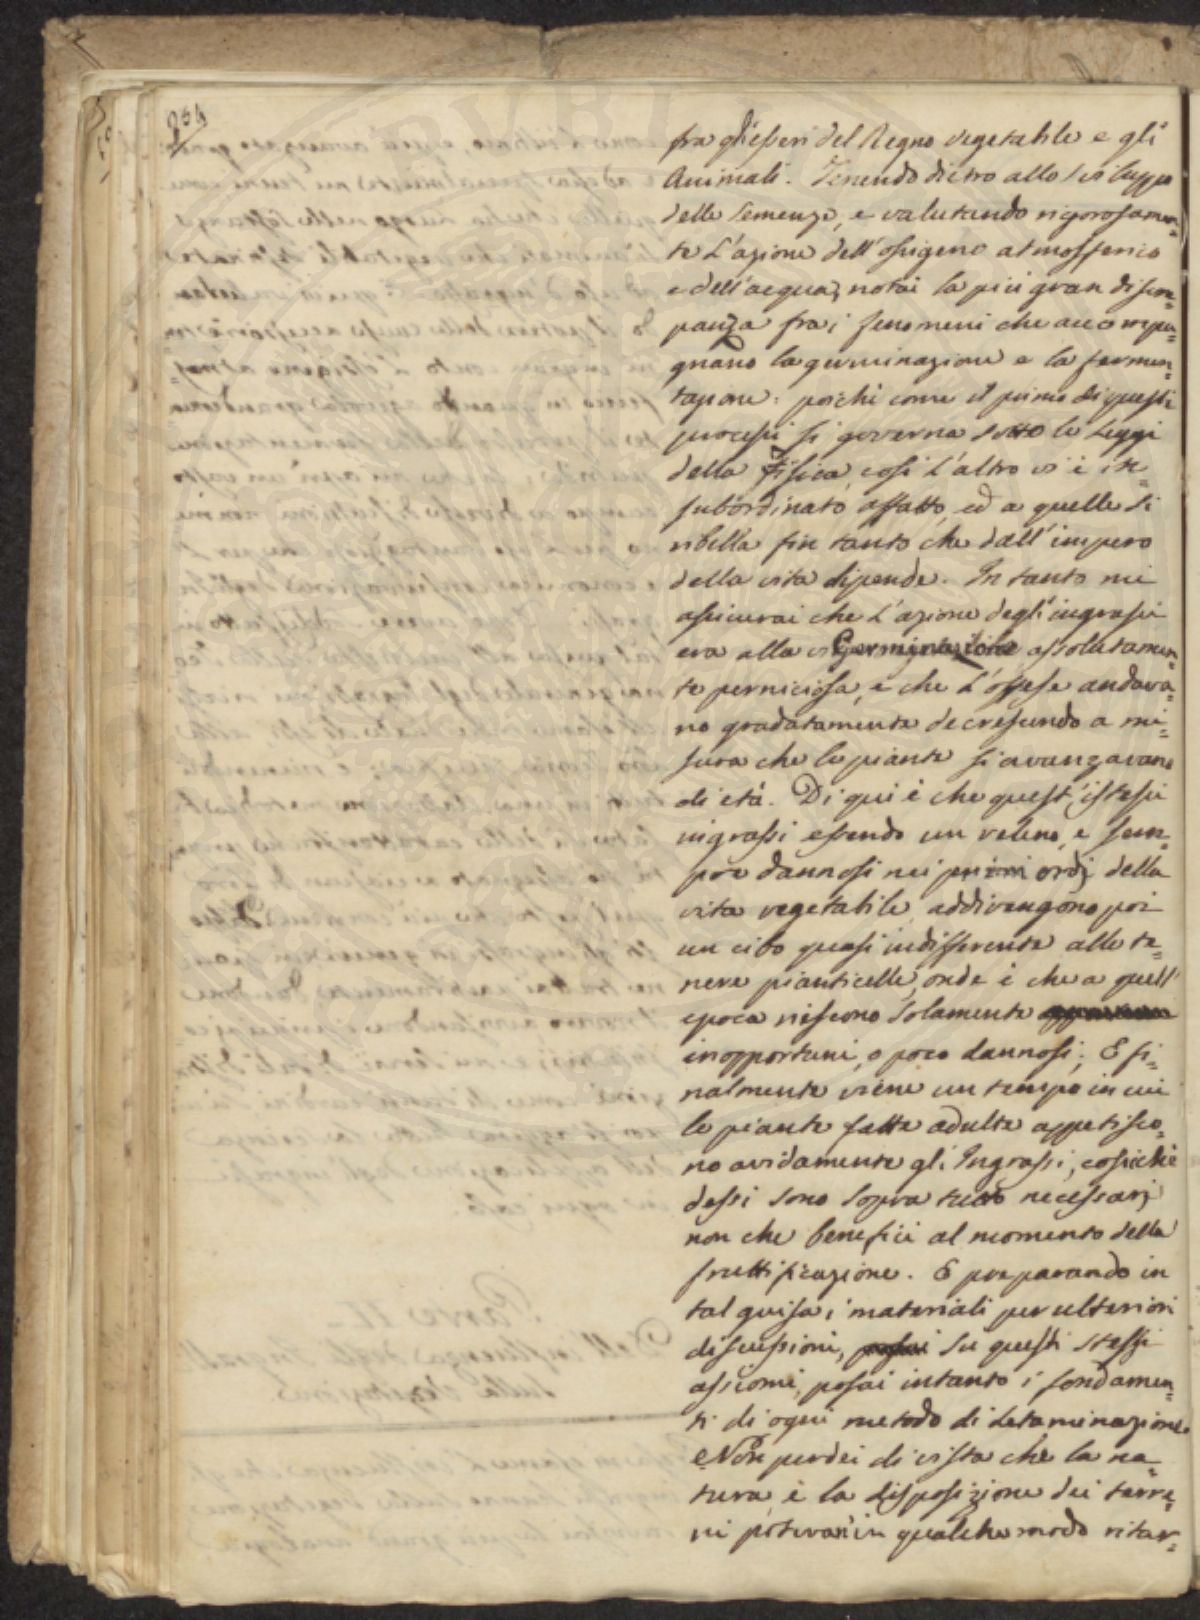 264
fra gli esseri del Regno vegetabile e gli
Animali. Tenendo dietro allo sviluppo
delle semenze, e valutando rigorosamen=
te l'azione dell'ossigeno atmosferico
e dell'acqua, notai la più gran discre=
panza fra i fenomeni che accompa=
gnano la germinazione e la fermen=
tazione: poichè come il primo di questi
processi si governa sotto le Leggi
della Fisica, così l'altro vi è in=
subordinato affatto, ed a quelle si
ribella fin tanto che dall'impero
della vita dipende. In tanto mi
assicurai che l'azione degl'ingrassi
era alla Germinazione assolutamen=
te perniciosa, e che l'offese andava=
no gradatamente decrescendo a mi=
sura che le piante si avanzavano
di età. Di qui è che quest'istessi
ingrassi essendo un veleno, e sem=
pre dannosi nei primi ordj della
vita vegetabile, addivengono poi
un cibo quasi indifferente alle te=
nere pianticelle, onde è che a quell'
epoca riescono solamente
inopportuni, o poco dannosi; E fi=
nalmente viene un tempo in cui
le piante fatte adulte appetisco=
no avidamente gli Ingrassi, cosichè
dessi sono sopra tutto necessarj
non che benefici al momento della
fruttificazione. E preparando in
tal guisa i materiali per ulteriori
discussioni, posai su questi stessi
assiomi, posai intanto i fondamen=
ti di ogni metodo di letaminazione.
Non perdei di vista che la na=
tura, e la disposizione dei terre=
ni potevan'in qualche modo ritar=